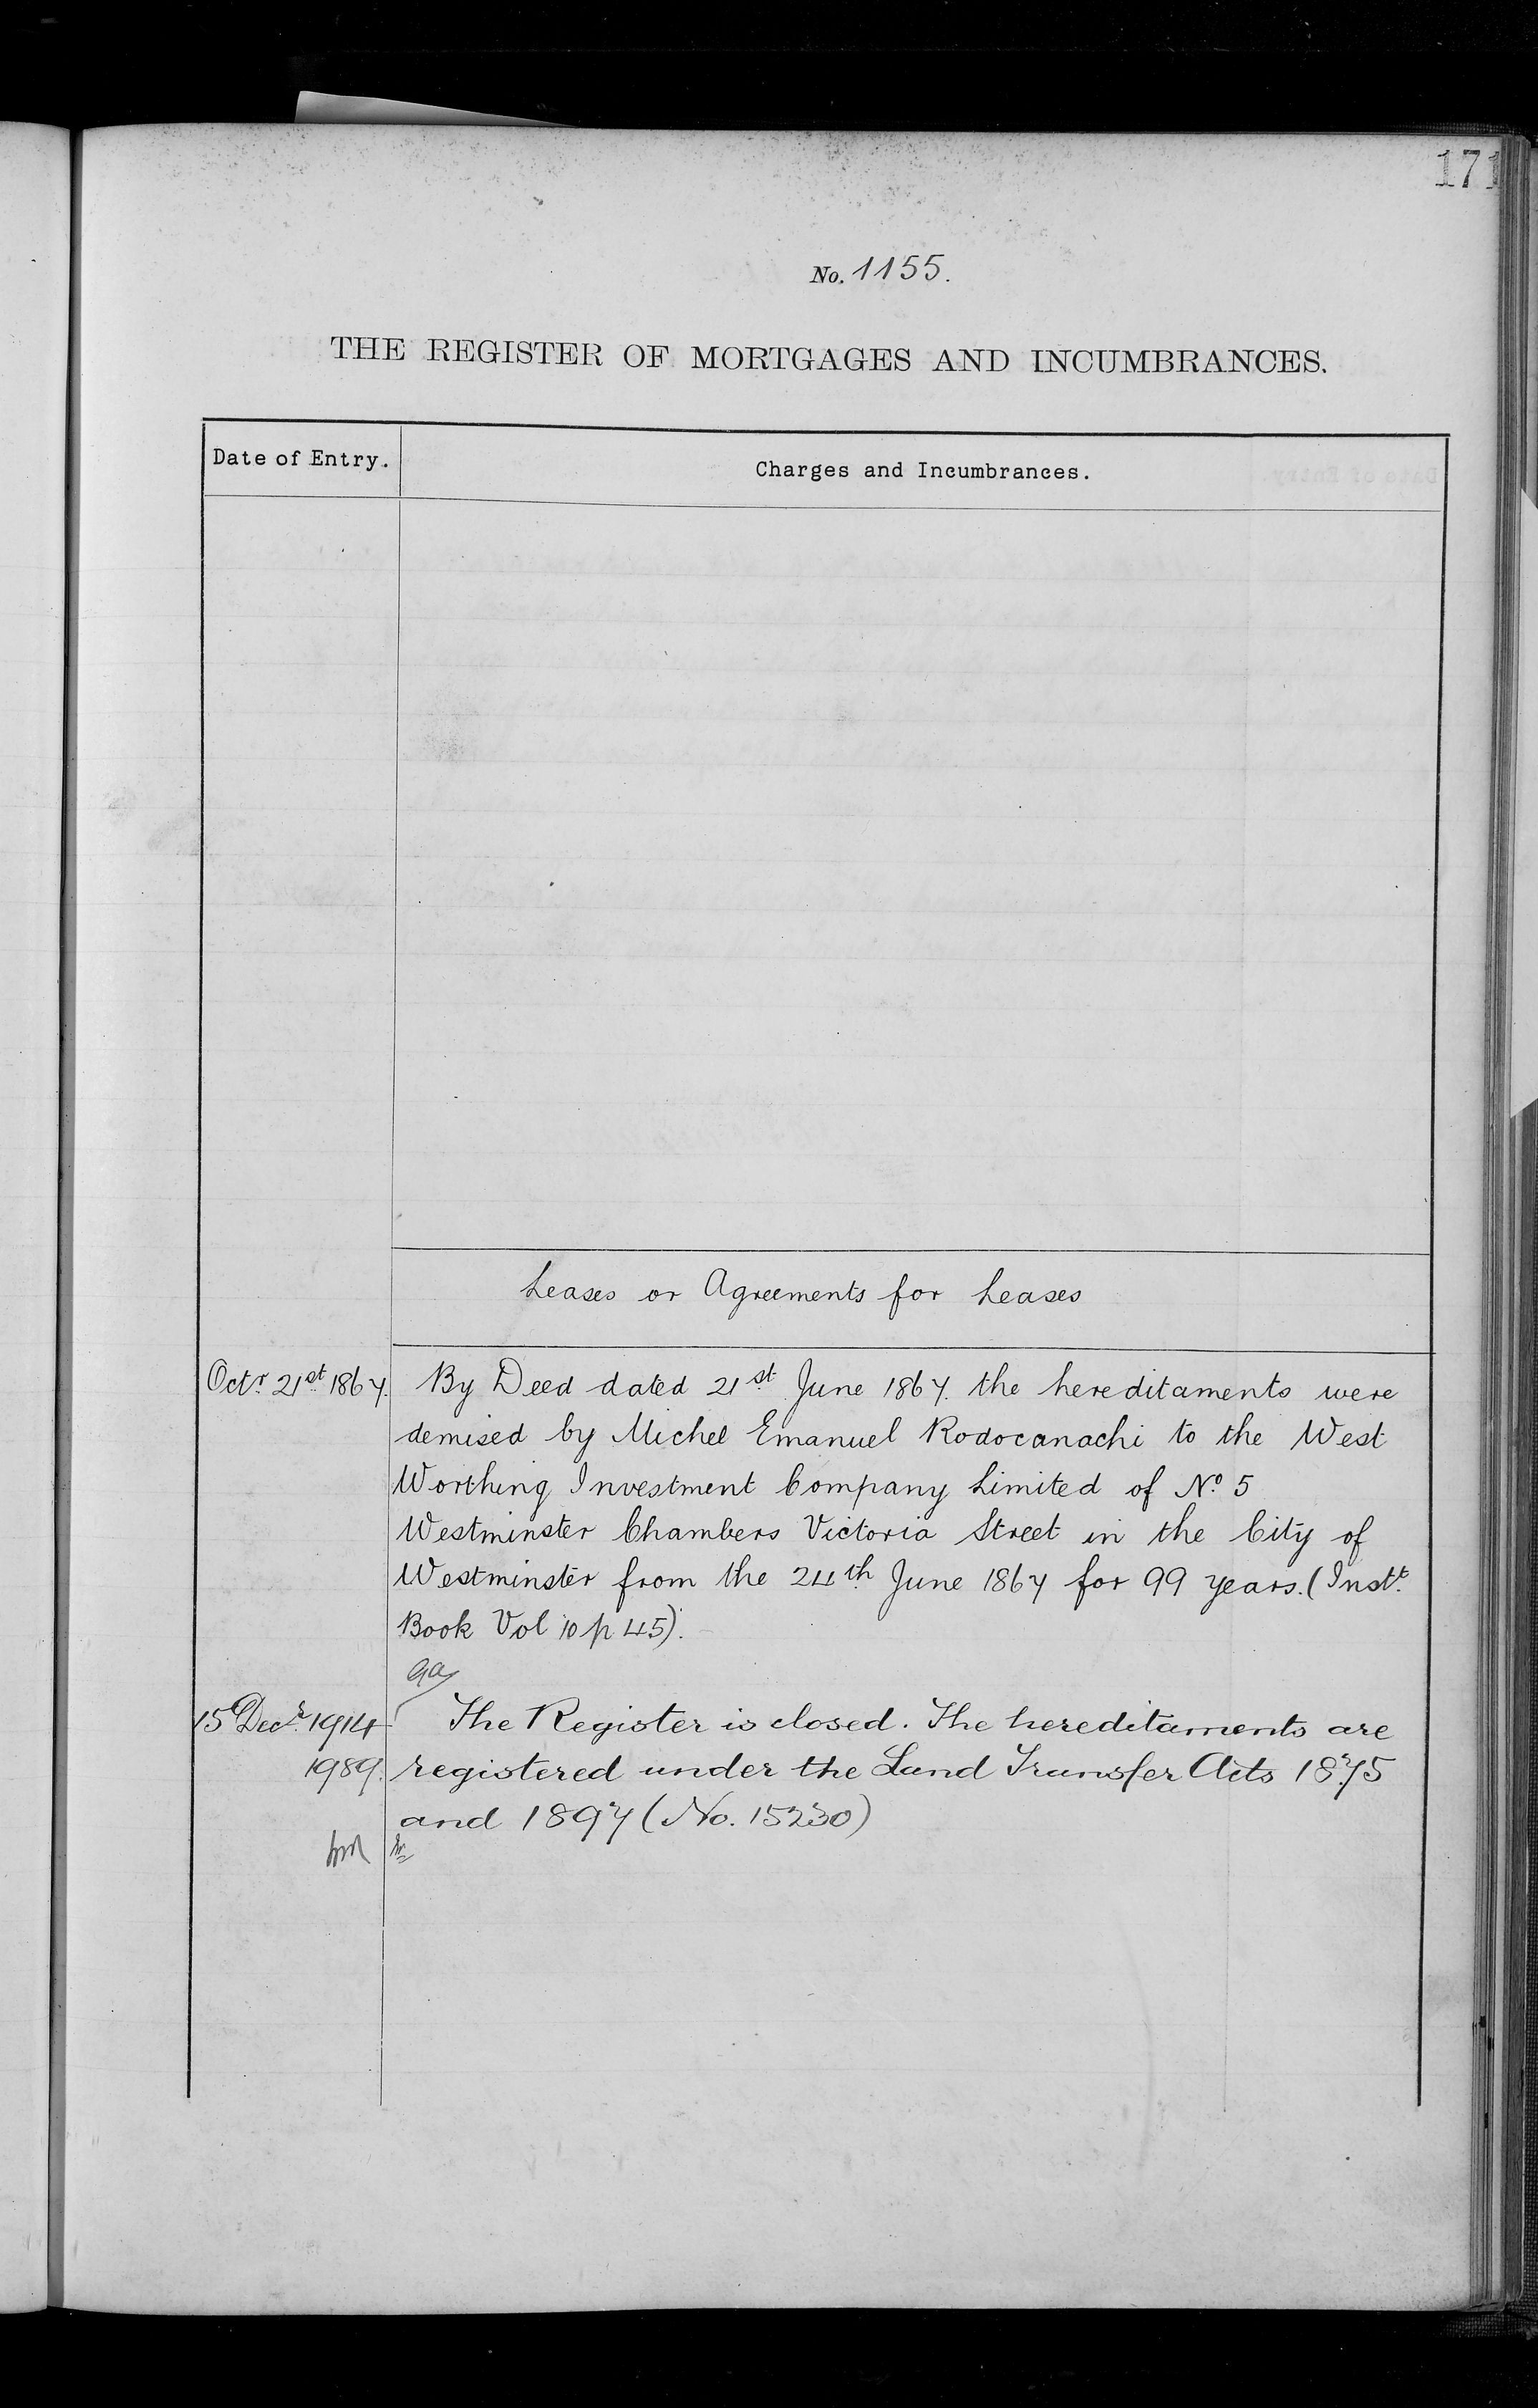 171
No. 1155.
THE REGISTER OF MORTGAGES AND INCUMBRANCES.
Date of Entry.
Charges and Incumbrances.
Leases or Agreements for Leases
Octr. 21st 1867.
By Deed dated 21st June 1867. the hereditaments were
demised by Michel Emanuel Rodocanachi to the West
Worthing Investment Company Limited of No. 5
Westminster Chambers Victoria Street in the City of
Westminster from the 24th June 1867 for 99 years. (Instt.
Book Vol 10 p 45).
15 Decr. 1914
The Register is closed. The hereditaments are
1989.
registered under the Land Transfer Acts 1875
and 1897 (No. 15230)